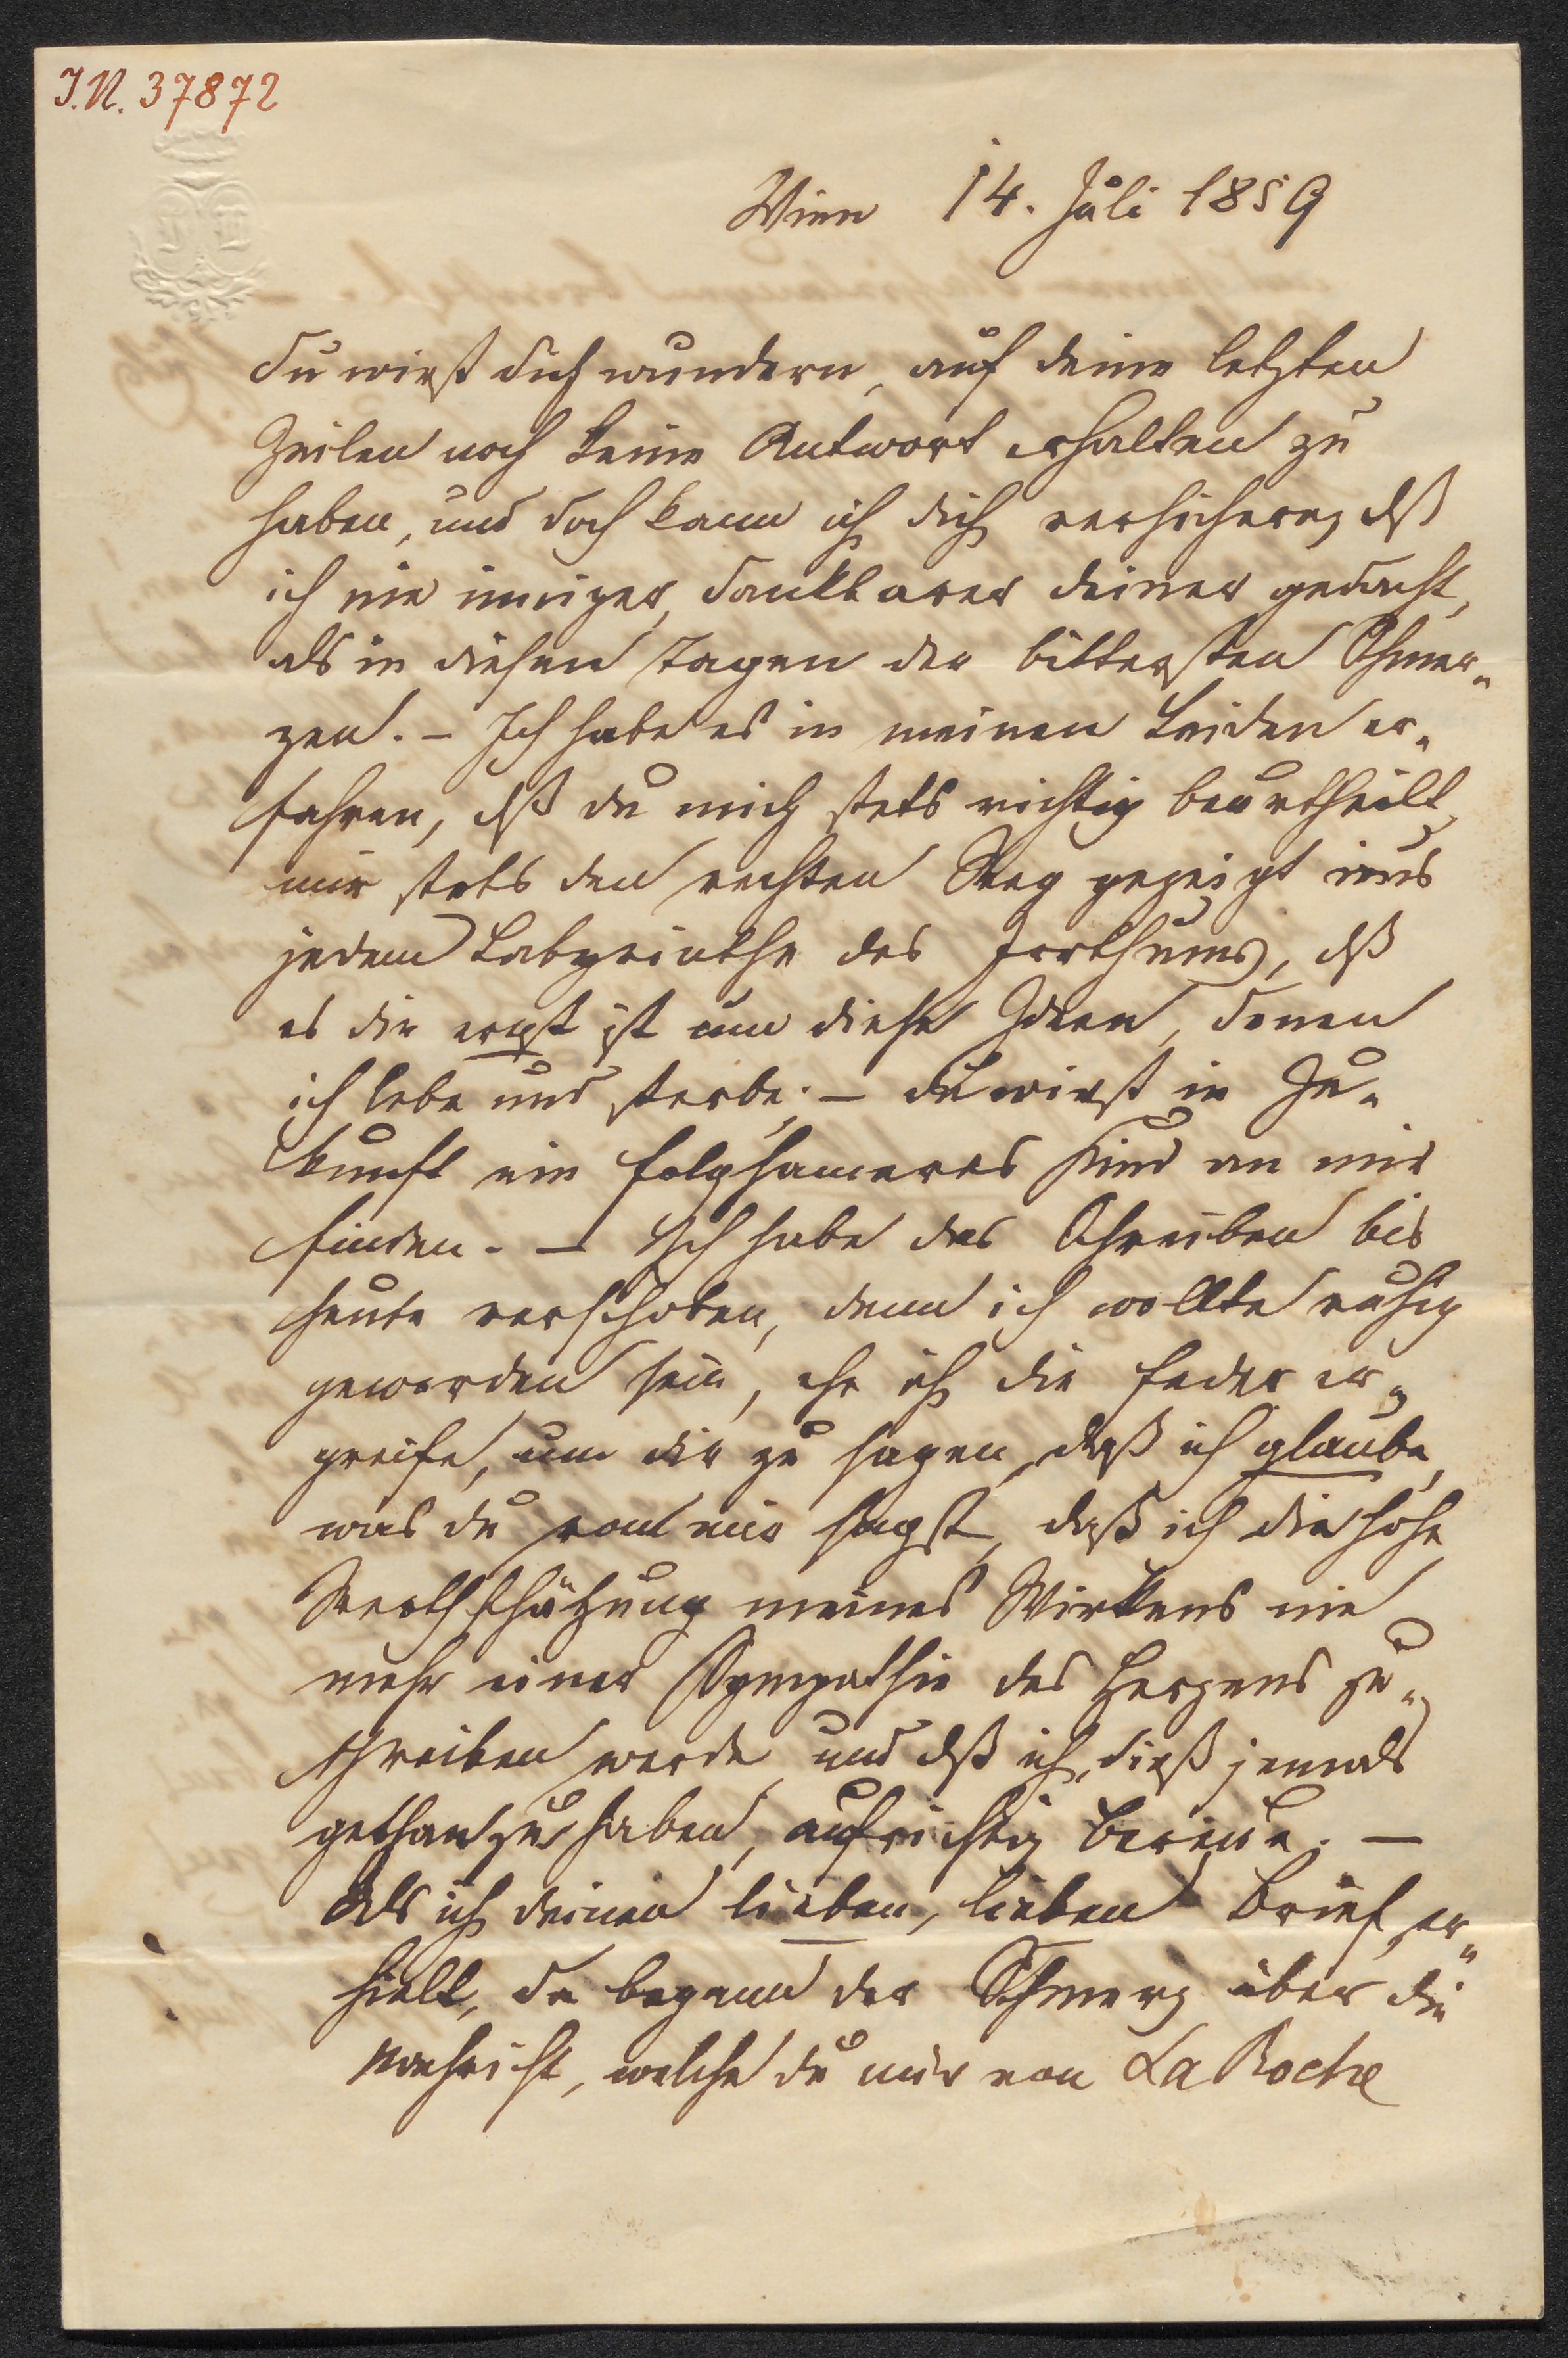 I.N. 37872
Wien 14. Juli 1859
Du wirst dich wundern, auf deine letzten
Zeilen noch keine Antwort erhalten zu
haben, und doch kann ich dich versichern, dß
ich nie inniger, dankbarer deiner gedacht,
als in diesen Tagen der bittersten Schmer„
zen. – Ich habe es in meinen Leiden er„
fahren, dß du mich stets richtig beurtheilt,
mir stets den rechten Weg gezeigt aus
jedem Labyrinthe des Irrthums, dß
es dir ernst ist um diese Ideen, denen
ich lebe und sterbe; – du wirst in Zu„
kunft ein folgsameres Kind an mir
finden. – Ich habe das Schreiben bis
heute verschoben, denn ich wollte ruhig
geworden sein, ehe ich die Feder er„
greife, um dir zu sagen, daß ich glaube,
was du von mir sagst, daß ich die hohe
Werthschätzung meines Wirkens nie
mehr einer Sympathie des Herzens zu„
schreiben werde und dß ich, dieß jemals
gethan zu haben, aufrichtig bereue. –
Als ich deinen lieben, lieben Brief er„
hielt, da begann der Schmerz über die
Nachricht, welche du mir von La Roche